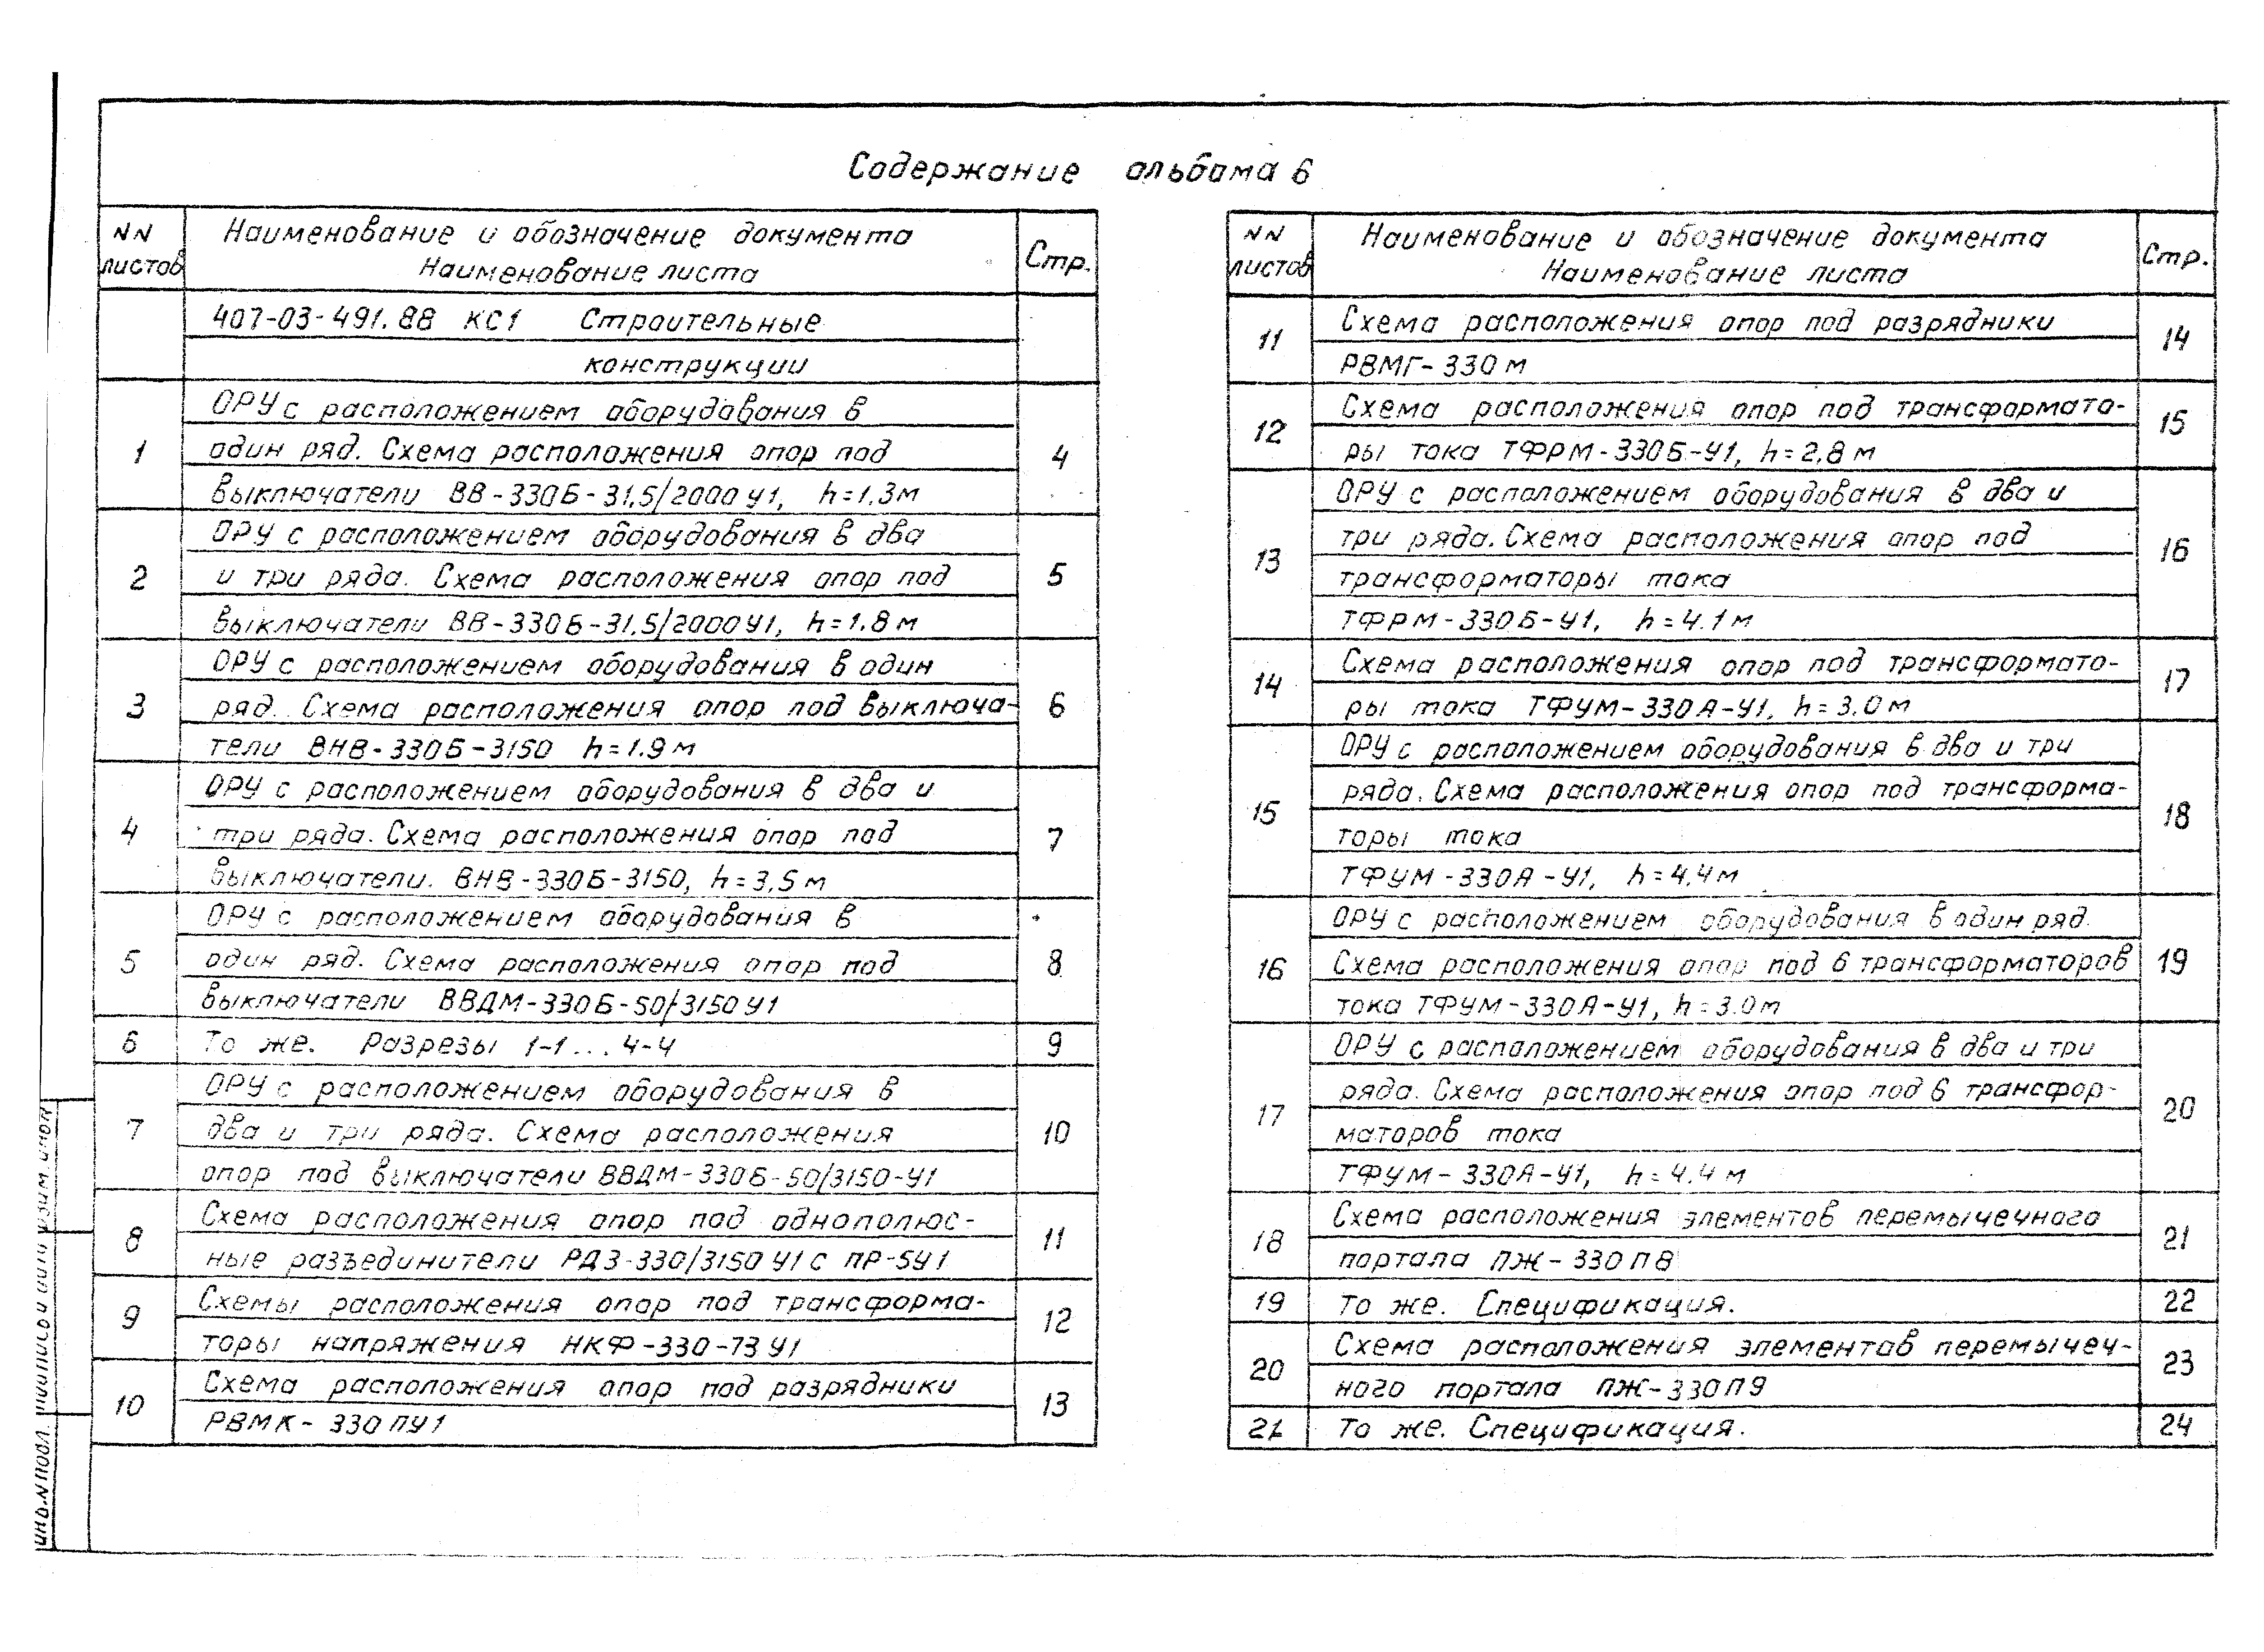 Содержание альбома 6
NN листов
Наименование и обозначение документа
Наименование листа
Стр.
407-03-491.88 КС1 Строительные
конструкции
1
ОРУ с расположением оборудования в
один ряд. Схема расположения опор под
выключатели ВВ-330Б-31,5/2000У1, h=1.3м
4
2
ОРУ с расположением оборудования в два
и три ряда. Схема расположения опор под
выключатели ВВ-330Б-31.5/2000У1, h=1.8м
5
3
ОРУ с расположением оборудования в один
ряд. Схема расположения опор под выключа-
тели ВНВ-330Б-3150 h=1.9м
6
4
ОРУ с расположением оборудования в два и
три ряда. Схема расположения опор под
выключатели. ВНВ-330Б-3150, h=3,5м
7
5
ОРУ с расположением оборудования в
один ряд. Схема расположения опор под
выключатели ВВДМ-330Б-50/3150У1
8
6
То же. Разрезы 1-1...4-4
9
7
ОРУ с расположением оборудования в
два и три ряда. Схема расположения
опор под выключатели ВВДМ-330Б-50/3150-У1
10
8
Схема расположения опор под однополюс-
ные разъединители РДЗ-330/3150У1 с ПР-5У1
11
9
Схемы расположения опор под трансформа-
торы напряжения НКФ-330-73У1
12
10
Схема расположения опор под разрядники
РВМК-330ПУ1
13
NN листов
Наименование и обозначение документа
Наименование листа
Стр.
11
Схема расположения опор под разрядники
РВМГ-330м
14
12
Схема расположения опор под трансформато-
ры тока ТФРМ-330Б-У1, h=2,8м
15
13
ОРУ с расположением оборудования в два и
три ряда. Схема расположения опор под
трансформаторы тока
ТФРМ-330Б-У1, h=4.1м
16
14
Схема расположения опор под трансформато-
ры тока ТФУМ-330А-У1, h=3.0м
17
15
ОРУ с расположением оборудования в два и три
ряда. Схема расположения опор под трансформа-
торы тока
ТФУМ-330А-У1, h=4,4м
18
16
ОРУ с расположением оборудования в один ряд.
Схема расположения опор под 6 трансформаторов
тока ТФУМ-330А-У1, h=3.0м
19
17
ОРУ с расположением оборудования в два и три
ряда. Схема расположения опор под 6 трансфор-
маторов тока
ТФУМ-330А-У1, h=4.4м
20
18
Схема расположения элементов перемычечного
портала ПЖ-330П8
21
19
То же. Спецификация.
22
20
Схема расположения элементов перемычеч-
ного портала ПЖ-330П9
23
21
То же. Спецификация.
24
Инв.N подл.
Подпись и дата
Взам.инв.N